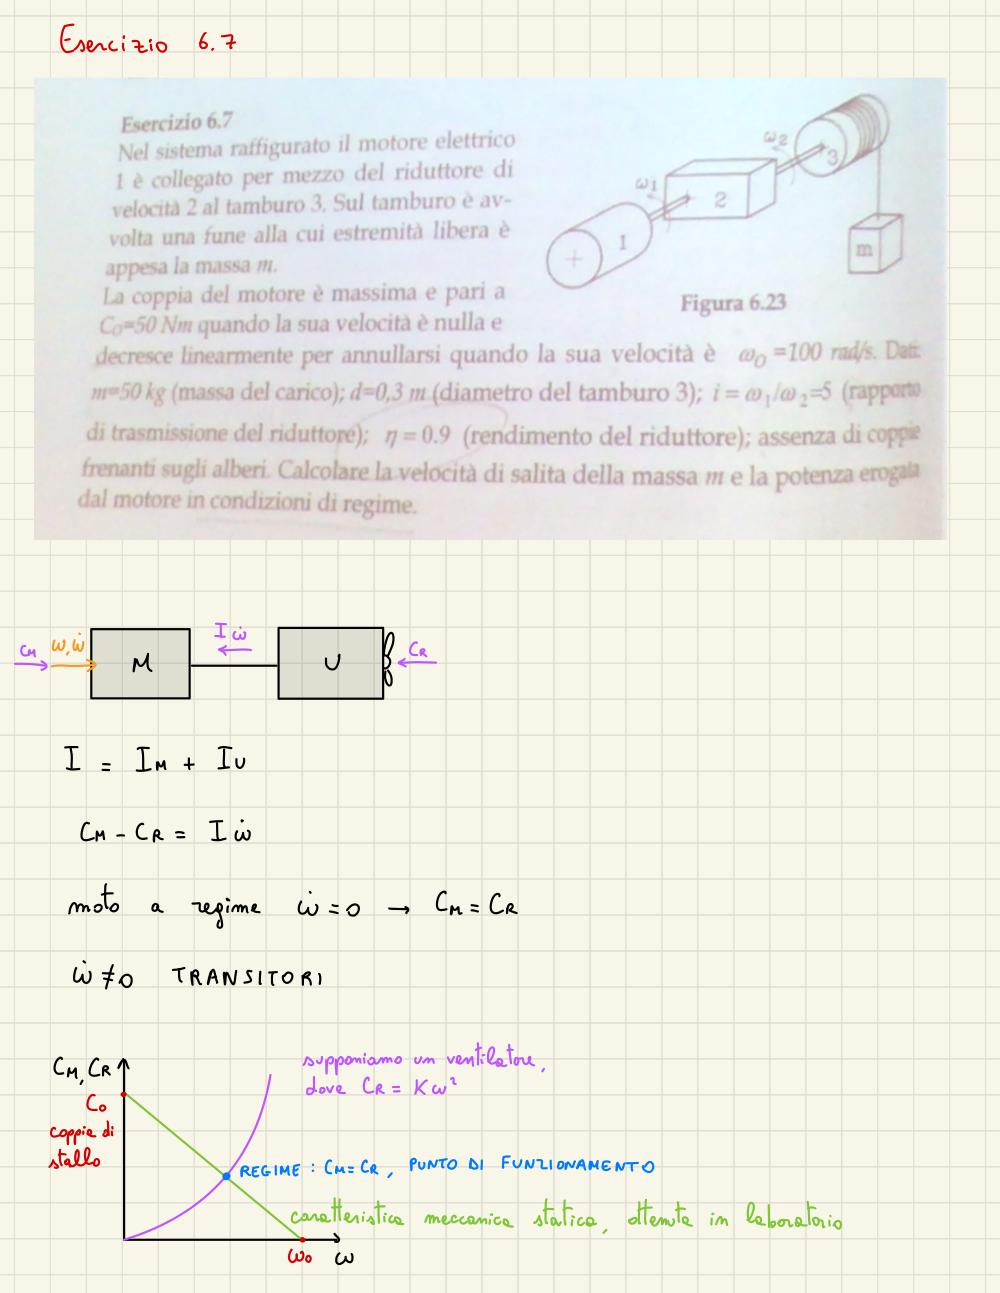 Esercizio 6.7
Esercizio 6.7
Nel sistema raffigurato il motore elettrico
1 è collegato per mezzo del riduttore di
velocità 2 al tamburo 3. Sul tamburo è av-
volta una fune alla cui estremità libera è
appesa la massa m.
La coppia del motore è massima e pari a
C₀=50 Nm quando la sua velocità è nulla e
ω₁
ω₂
1
2
3
m
Figura 6.23
decresce linearmente per annullarsi quando la sua velocità è ω₀ =100 rad/s. Dati:
m=50 kg (massa del carico); d=0,3 m (diametro del tamburo 3); i = ω₁/ω₂=5 (rapporto
di trasmissione del riduttore); η = 0.9 (rendimento del riduttore); assenza di coppie
frenanti sugli alberi. Calcolare la velocità di salita della massa m e la potenza erogata
dal motore in condizioni di regime.
C_M ω, ω̇ M I ω̇ U C_R
I = I_M + I_U
C_M - C_R = I ω̇
moto a regime ω̇ = 0 → C_M = C_R
ω̇ ≠ 0 TRANSITORI
C_M, C_R
C₀
coppia di
stallo
supponiamo un ventilatore,
dove C_R = K ω²
REGIME : C_M = C_R , PUNTO DI FUNZIONAMENTO
caratteristica meccanica statica, ottenuta in laboratorio
ω₀ ω